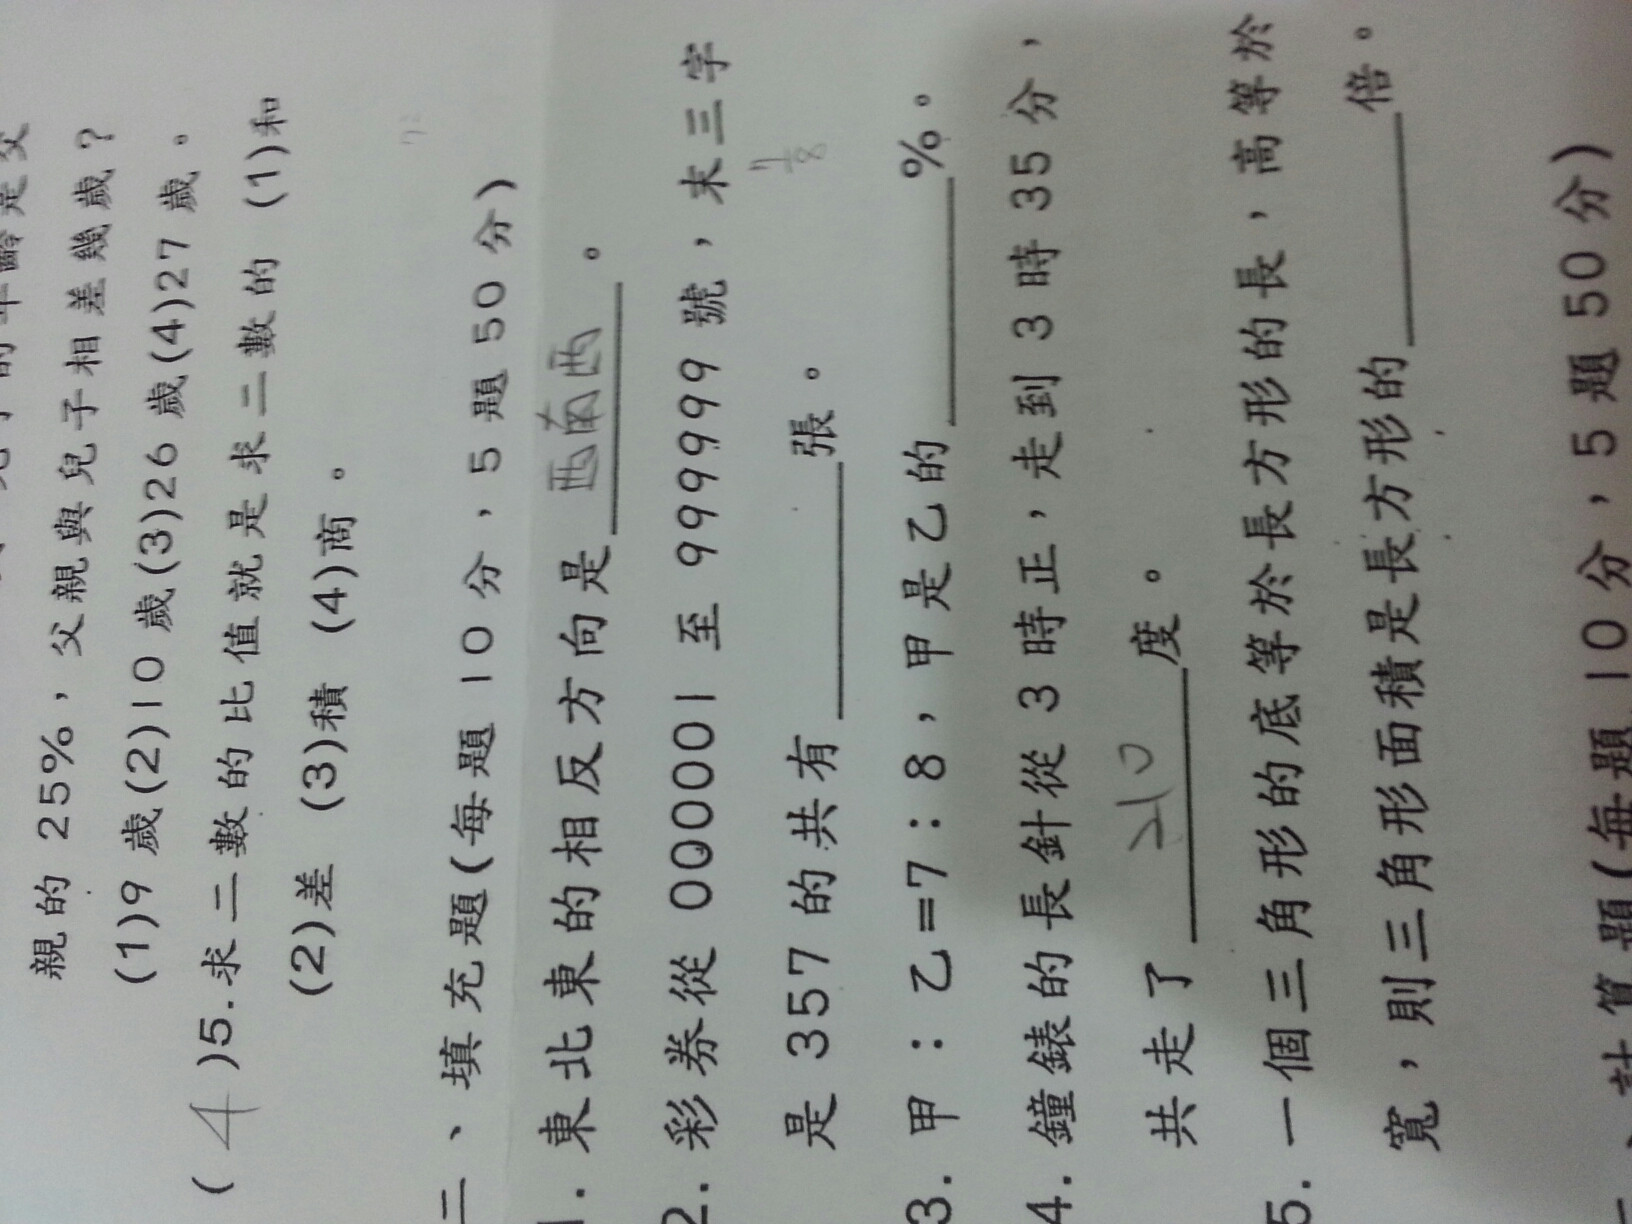 親的 25%，父親與兒子相差幾歲？
(1)9 歲(2)10 歲(3)26 歲(4)27 歲。
( 4 )5.求二數的比值就是求二數的 (1)和
(2)差 (3)積 (4)商。
二、填充題(每題 10 分，5 題 50 分)
1.東北東的相反方向是 西南西 。
2.彩券從 000001 至 999999 號，末三字
是 357 的共有______張。 7/8
3.甲：乙=7：8，甲是乙的______%。
4.鐘錶的長針從 3 時正，走到 3 時 35 分，
共走了 210 度。
5.一個三角形的底等於長方形的長，高等於
寬，則三角形面積是長方形的______倍。
計算題(每題 10 分，5 題 50 分)